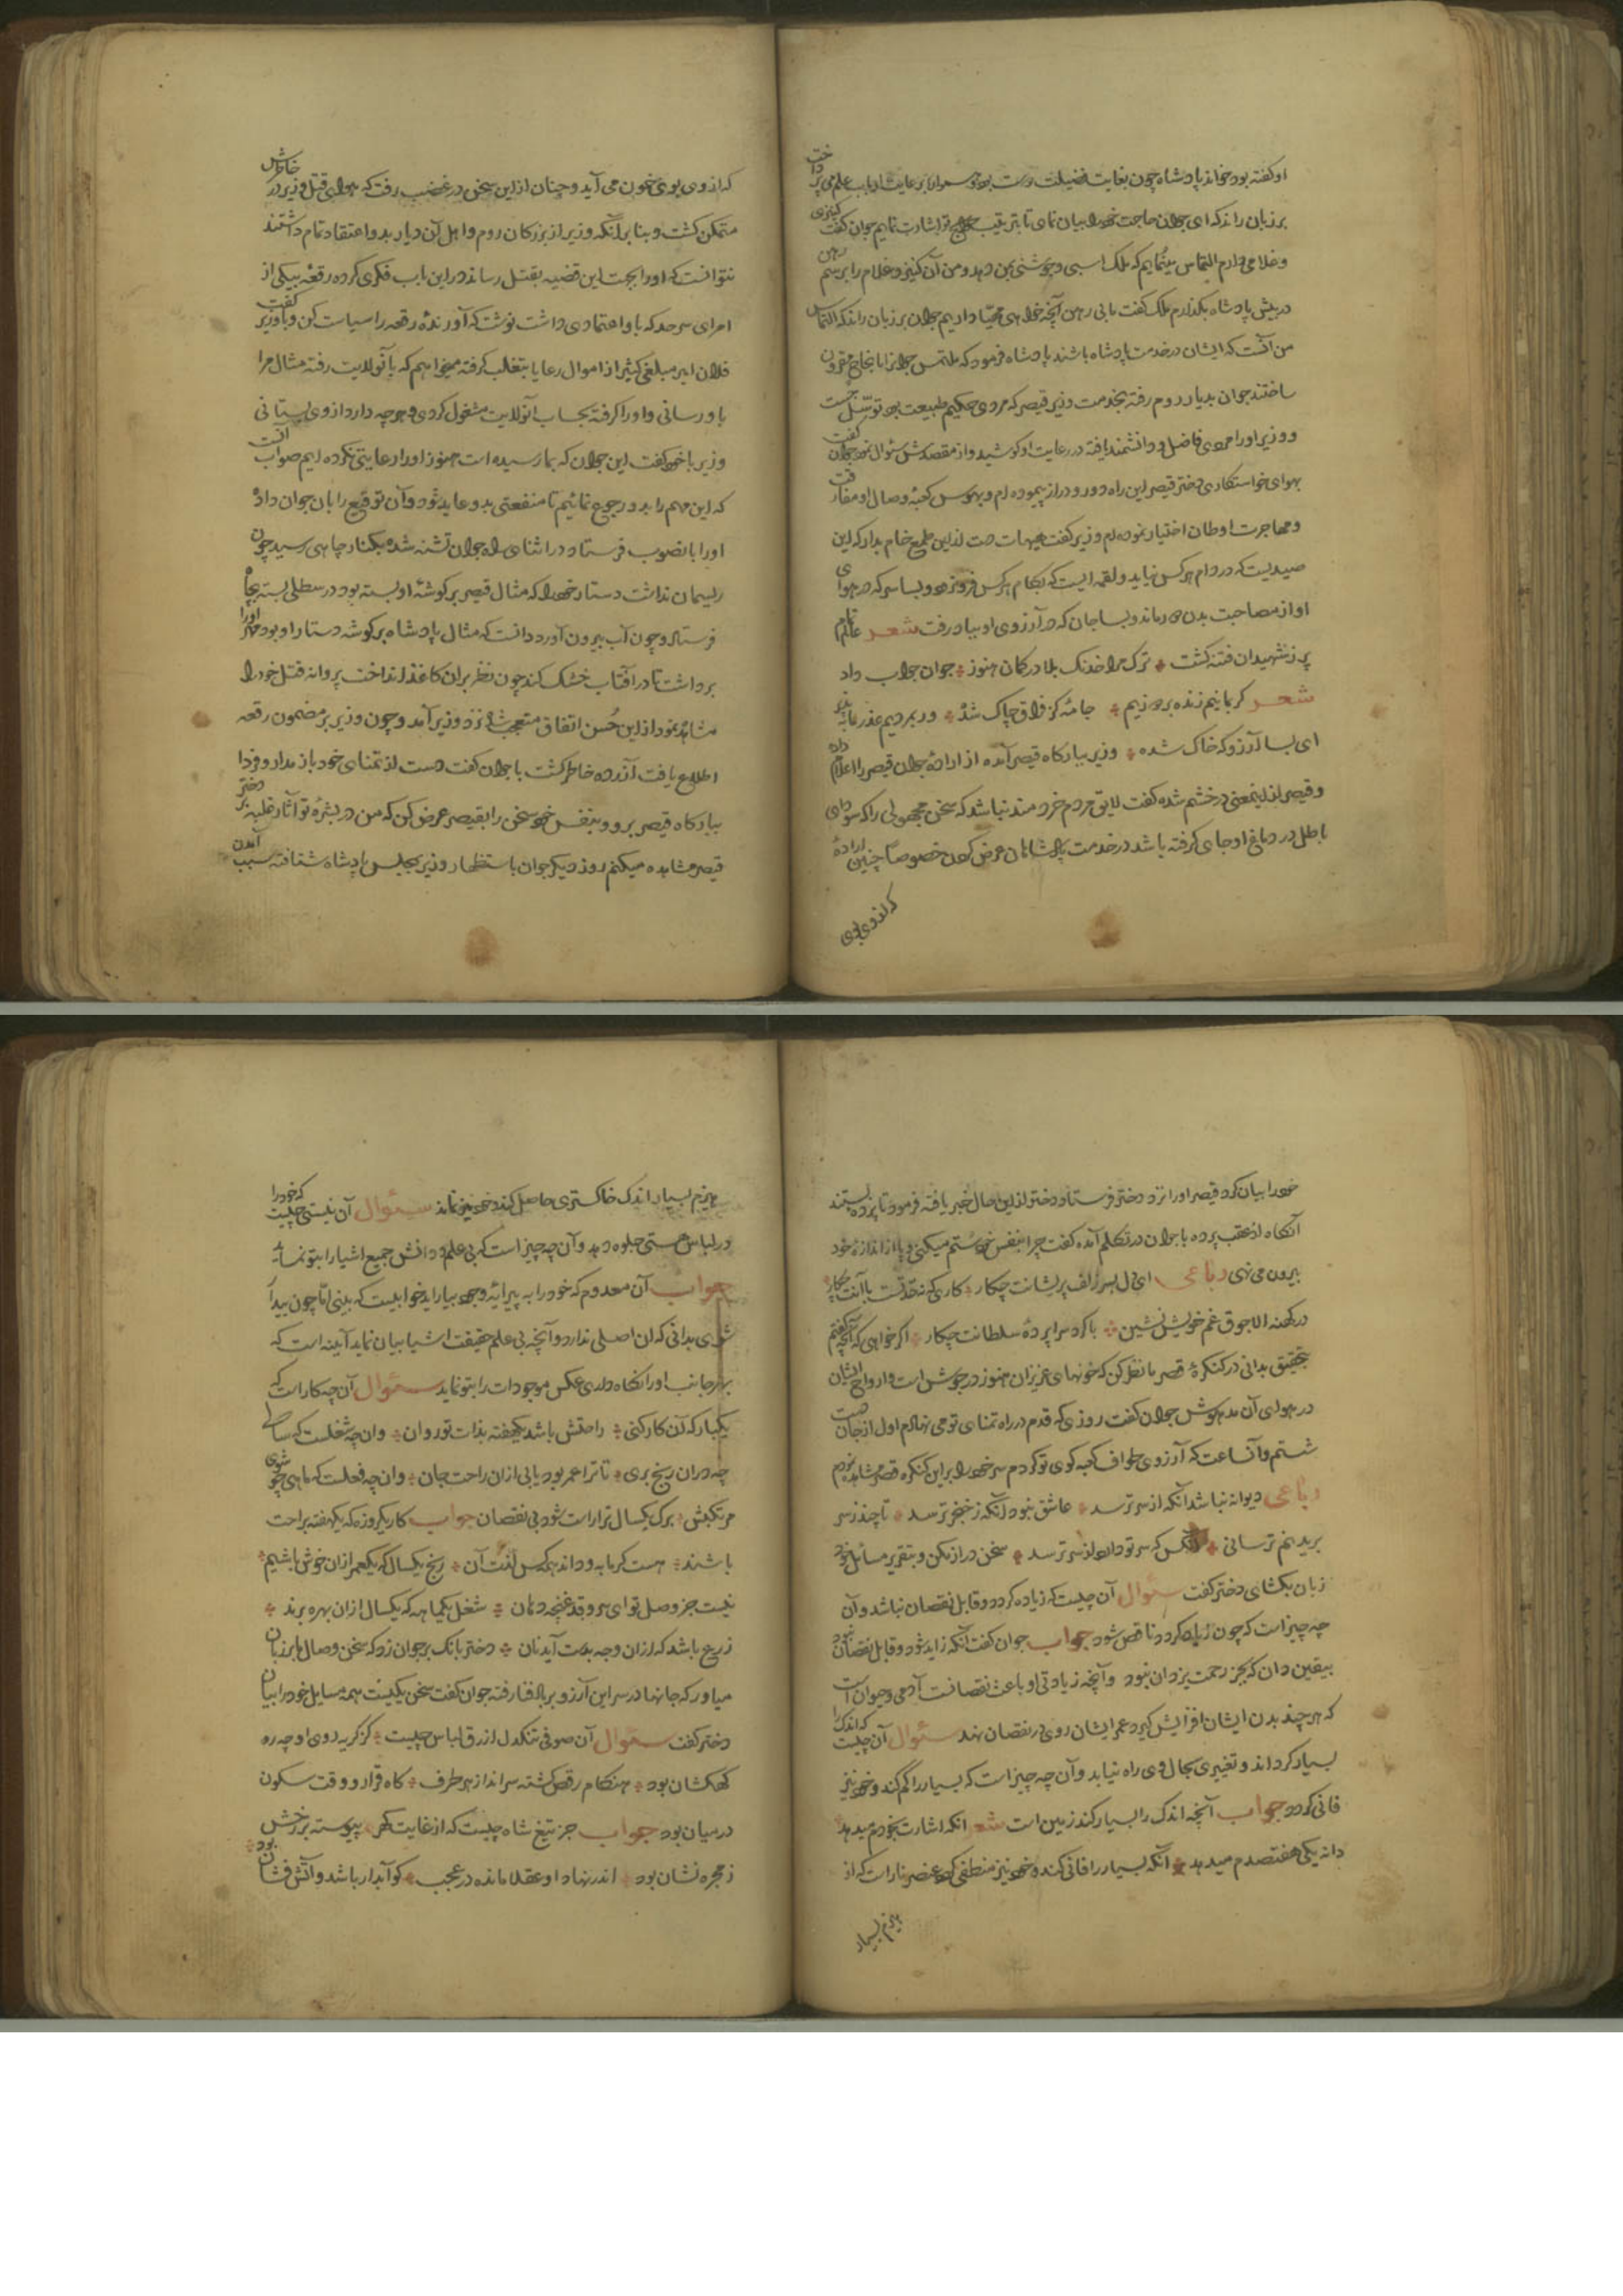 او گفته بود خواند پادشاه چون بغایت فضیلت دوست بود و همواره بر عایت ارباب علم می پرداخت
بر زبان راند که ای جوان حاجت خود را بیان نمای تا بترتیب حوایج تو اشارت نمایم جوان گفت کنیزی
و غلامی دارم التماس مینمایم که ملک اسبی و جوشنی بمن دهد و من آن کنیز و غلام را برسم رهن
در پیش پادشاه بگذارم ملک گفت بابی رهن آنچه خواهی مهیا داریم جوان بر زبان راند که التماس
من آنست که ایشان در خدمت پادشاه باشند پادشاه فرمود که ملتمس جوانرا بانجاح مقرون
ساختند جوان بدیار روم رفته بخدمت وزیر قیصر که مردی حکیم طبیعت بود توسل جست
و وزیر او را مردی فاضل و دانشمند یافته در رعایت او کوشید و از مقصدش سئوال نمود جوان گفت
بهوای خواستکاری دختر قیصر این راه دور و دراز پیموده ام و بهوس کعبه وصال او مفارقت
و مهاجرت اوطان اختیار نموده ام وزیر گفت هیهات دست ازین طمع خام بدار که این
صیدیست که در دام هر کس نیاید و لقمه ایست که بکام هر کس فرو نرود و بسا سر که در هوای
او از مصاحبت بدن دور ماند و بسا جان که در آرزوی او بباد رفت شعر عالم تمام
پر ز شهیدان فتنه گشت ترک مرا خدنک بلا در کمان هنوز جوان جواب داد
شعر کر بمانیم زنده بر دوزیم جامهٔ کز فراق چاک شده ور بمردیم عذر ما بپذیر
ای بسا آرزو که خاک شده وزیر ببارکاه قیصر آمده از ارادهٔ جوان قیصر را اعلام داد
و قیصر از اینمعنی در خشم شده گفت لایق مردم خردمند نباشد که سخن مجهولی را که سودای
باطل در دماغ او جای کرفته باشد در خدمت پادشاهان عرض کردن خصوصا چنین ارادهٔ
که از وی بوی
که از وی بوی خون می آید و چنان ازین سخن در غضب رفت که هوای قتل وزیر در خاطرش
متمکن کشت و بنا بر آنکه وزیر از بزرکان روم و اهل آن دیار بدو اعتقاد تمام داشتند
نتوانست که او را بجهت این قضیه بقتل رساند درین باب فکری کرده رقعه بیکی از
امرای سرحد که باو اعتمادی داشت نوشت که آورندهٔ رقعه را سیاست کن و با وزیر گفت
فلان امیر مبلغی کثیر از اموال رعایا بتغلب کرفته میخواهم که بآنولایت رفته مثال مرا
باو رسانی و او را کرفته بحساب آنولایت مشغول کردی و هر چه دارد از وی بستانی
وزیر با خود گفت این جوان که بما رسیده است هنوز او را رعایتی نکرده ایم صواب آنست
که این مهم را بدو رجوع نمائیم تا منفعتی بدو عاید شود و آن توقیع را بان جوان داده
او را بانصوب فرستاد در اثنای راه جوان تشنه شده بکنار چاهی رسید چون
ریسمان نداشت دستار خود را که مثال قیصر بر کوشهٔ او بسته بود در سطلی بسته بچاه
فرستاد و چون آب بیرون آورد دانست که مثال پادشاه بر کوشه دستار او بود مهر او را
برداشت تا در آفتاب خشک کند چون نظر بران کاغذ انداخت پروانه قتل خود را
مشاهده نمود از این حسن اتفاق متعجب شد نزد وزیر آمد و چون وزیر بر مضمون رقعه
اطلاع یافت آزرده خاطر کشت با جوان گفت دست از تمنای خود باز مدار و فردا
ببارکاه قیصر برو و بنفس خود سخن را بقیصر عرض کن که من در بشرهٔ تو آثار غلبه بر دختر
قیصر مشاهده میکنم روز دیگر جوان باستظهار وزیر بمجلس پادشاه شتافته سبب آمدن
خود را بیان کرد قیصر او را نزد دختر فرستاد و دختر ازین حال خبر یافته فرمود تا پرده بستند
آنگاه از عقب پرده با جوان در تکلم آمده گفت چرا بنفس خود ستم میکنی و پا از اندازهٔ خود
بیرون می نهی رباعی ای دل بسر زلف پریشانت چکار کاری که نه حد تست با آنت چکار
در کهنه الاجوق غم خویش نشین با کرد سراپردهٔ سلطانت چکار اکر خواهی که آنچه گفتم
بتحقیق بدانی در کنکرهٔ قصر ما نظر کن که خونهای عزیزان هنوز در جوش است و ارواح ایشان
در هوای آن مدهوش جوان گفت روزی که قدم در راه تمنای تو می نهادم اول از جان دست
شستم و آنساعت که آرزوی طواف کعبه کوی تو کردم سر خود را بر این کنکره قصر مشاهده نمودم
رباعی دیوانه نباشد آنکه از سر ترسد عاشق نبود آنکه ز خنجر ترسد تا چند ز سر
بریدنم ترسانی آنکس که سر تو دارد از سر ترسد سخن دراز مکن و بتقریر مسائل خود
زبان بکشای دختر گفت سئوال آن چیست که زیاده کردد و قابل نقصان نباشد و آن
چه چیز است که چون زیاده کردد ناقص شود جواب جوان گفت آنکه زاید شود و قابل نقصان نبود
بیقین دان که بجز رحمت یزدان نبود و آنچه زیادتی او باعث نقصانست آدمی و حیوان است
که هر چند بدن ایشان افزایش گیرد عمر ایشان روی در نقصان نهد سئوال آن چیست که اندک را
بسیار کرداند و تغییری بحال وی راه نیابد و آن چه چیز است که بسیار را کم کند و خود نیز
فانی کردد جواب آنچه اندک را بسیار کند زمین است شعر انکه اشارت بخودم میدهد
دانه یکی هفتصدم میدهد آنکه بسیار را فانی کند و خود نیز منطفی کردد عنصر نار است که از
هیزم بسیار
هیزم بسیار اندک خاکستری حاصل کند و خود نیز نماند سئوال آن نیستی چیست که خود را
در لباس هستی جلوه دهد و آن چه چیز است که بی علم و دانش جمیع اشیا را بتو نماید
جواب آن معدوم که خود را به پیرایهٔ وجود بیاراید خوابیست که بینی اما چون بیدار
شوی بدانی که ان اصلی ندارد و آنچه بی علم حقیقت اشیا بیان نماید آیینه است که
بهر جانب او را نکاه داری عکس موجودات را بتو نماید سئوال آن چه کار است که
یکبار که آن کار کنی راحتش باشد بیکهفته بذات تو روان وان چه شغلست که سالی
چه دران رنج بری تا ترا عمر بود یابی ازان راحت جان وان چه فعلست که ماهی چو شوی
مرتکبش برک یکسال ترا راست شود بی نقصان جواب کار یکروزه که یکهفته براحت
باشند هست کرمابه و داند همه کس لذت آن رنج یکسال که یکعمر ازان خوش باشیم
نیست جز وصل تو ای سرو قد غنچه دهان شغل یکماهه که یکسال ازان بهره برند
زرع باشد که ازان وجه بدست آید نان دختر بانک بر جوان زد که سخن وصال بر زبان
میاور که جانها در سر این آرزو بر باد فنا رفته جوان گفت سخن یکیست همه مسایل خود را بیان
دختر گفت سئوال آن صوفی تنکدل ازرق لباس چیست کز کریه روی او چه ره
کهکشان بود هنگام رقص گشته سرانداز هر طرف گاه قرار و وقت سکون
در میان بود جواب جز تیغ شاه چیست که از غایت گهر پیوسته بر رخش
ز مجره نشان بود اندر نهاد او عقلا مانده در عجب کو آبدار باشد و آتش فشان بود